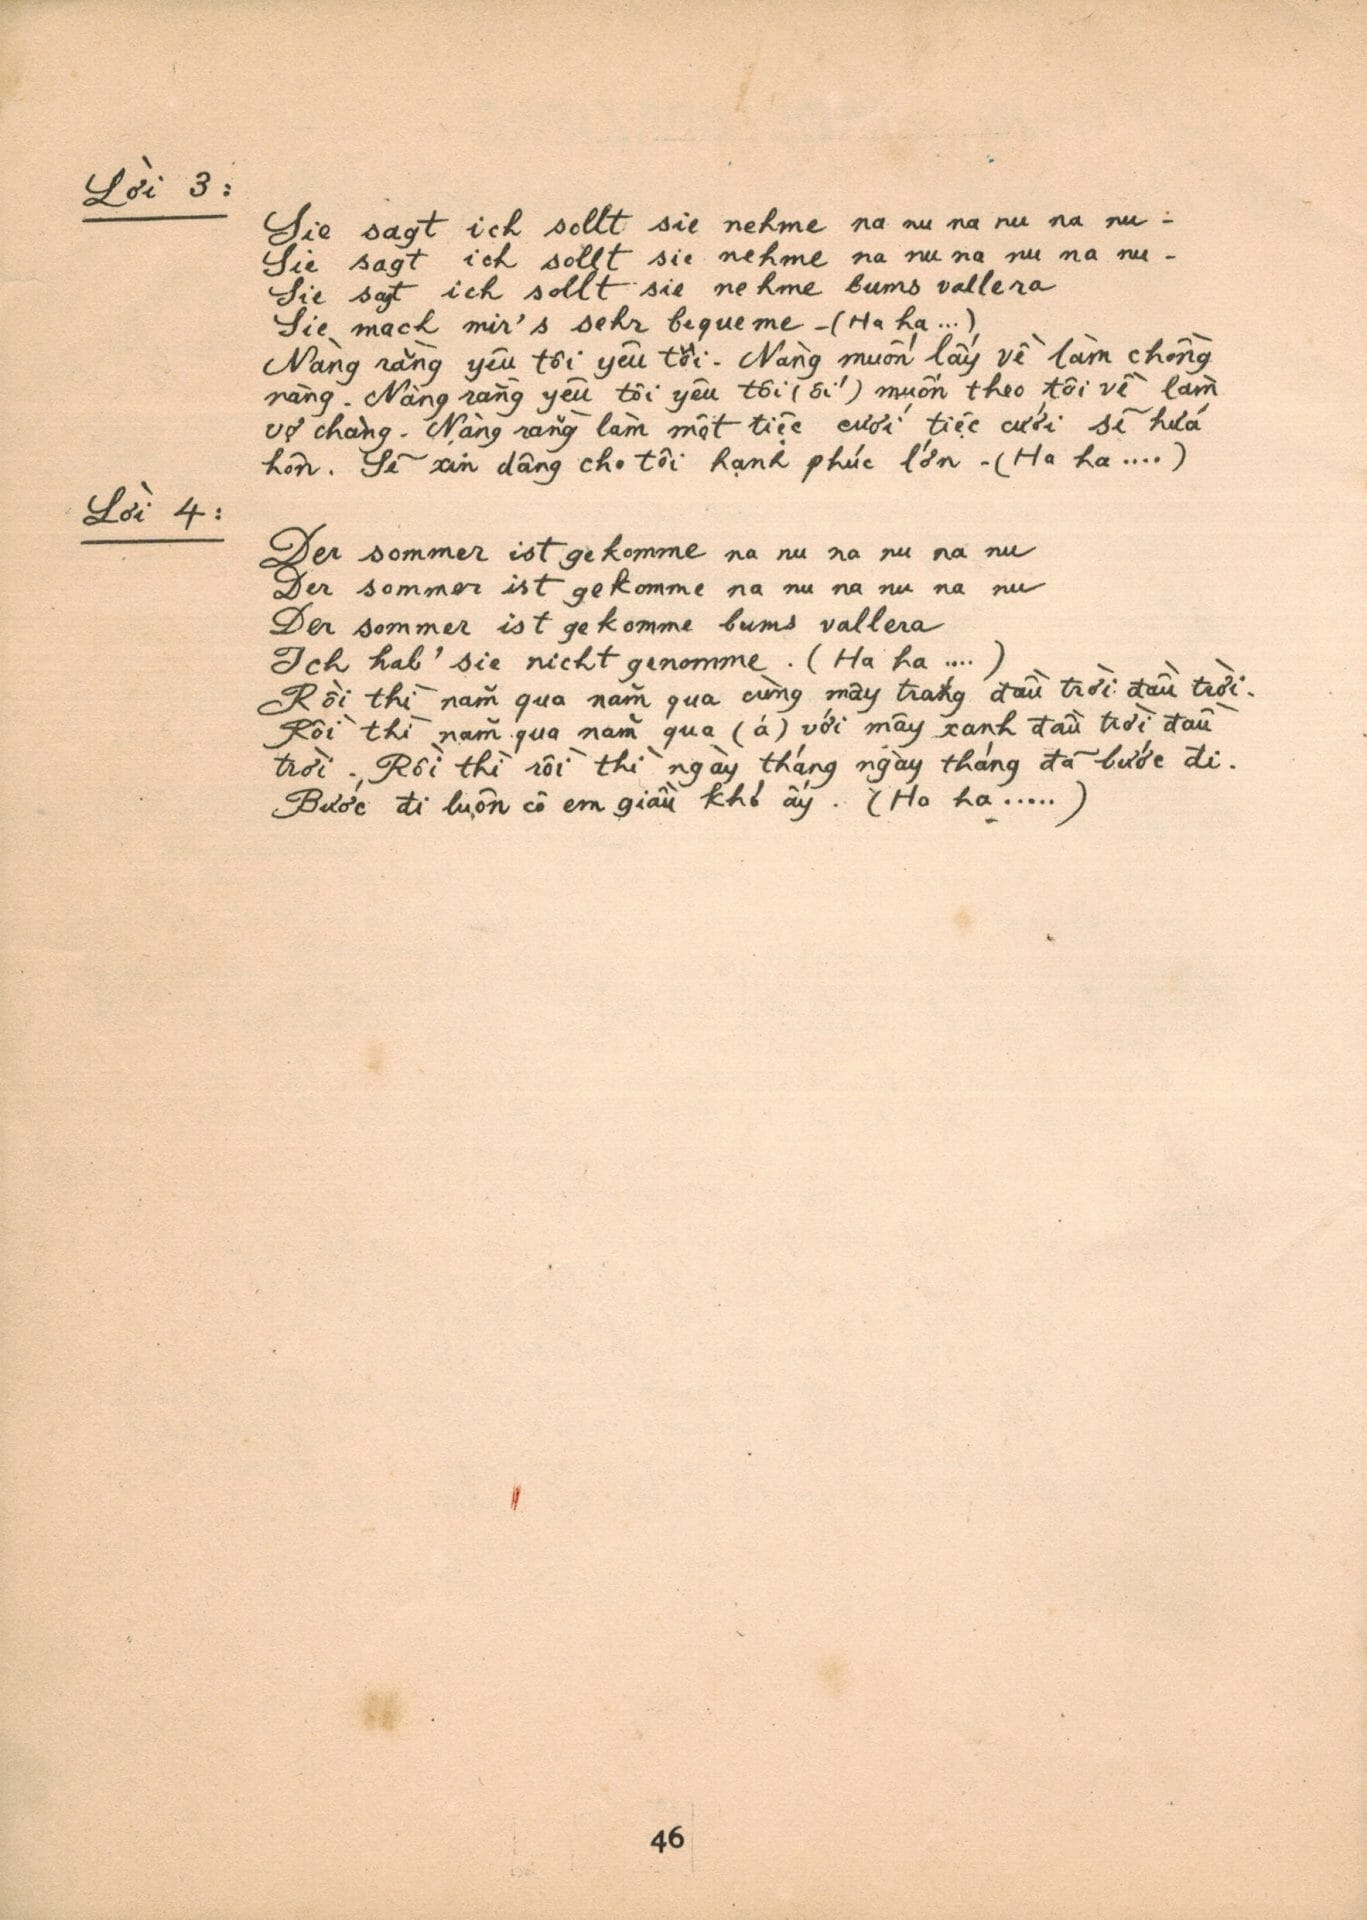 Lời 3 :
Sie sagt ich sollt sie nehme na nu na nu na nu -
Sie sagt ich sollt sie nehme na nu na nu na nu -
Sie sagt ich sollt sie nehme bums vallera
Sie mach mir's sehr bequeme - (Ha ha ...)
Nàng rằng yêu tôi yêu tôi. Nàng muốn lấy về làm chồng
nàng. Nàng rằng yêu tôi yêu tôi (ối) muốn theo tôi về làm
vợ chàng. Nàng rằng làm một tiệc cưới tiệc cưới sẽ hứa
hôn. Sẽ xin dâng cho tôi hạnh phúc lớn - (Ha ha ....)
Lời 4 :
Der sommer ist gekomme na nu na nu na nu
Der sommer ist gekomme na nu na nu na nu
Der sommer ist gekomme bums vallera
Ich hab' sie nicht genomme . (Ha ha ....)
Rồi thì năm qua năm qua cùng mây trắng đầu trời đầu trời.
Rồi thì năm qua năm qua (á) với mây xanh đầu trời đầu
trời . Rồi thì rồi thì ngày tháng ngày tháng đã bước đi.
Bước đi luôn cô em giầu khó ấy . (Ha ha .....)
46